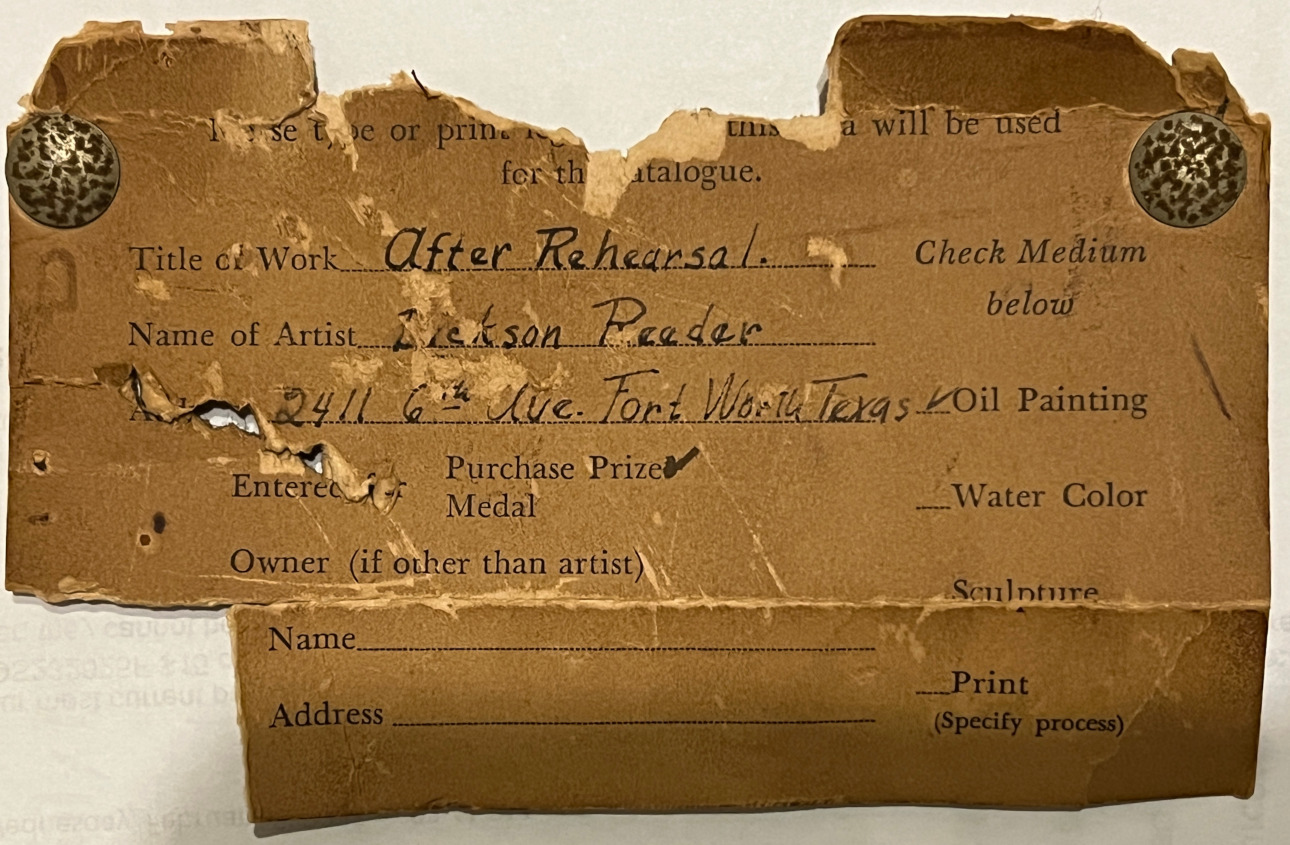 type or print this will be used
for the catalogue.
Title of Work After Rehearsal.
Check Medium
below
Name of Artist Dickson Reeder
2411 6th Ave. Fort Worth Texas ✓ Oil Painting
Entered for Purchase Prize ✓
Medal
Water Color
Owner (if other than artist)
Sculpture
Name
Print
Address
(Specify process)